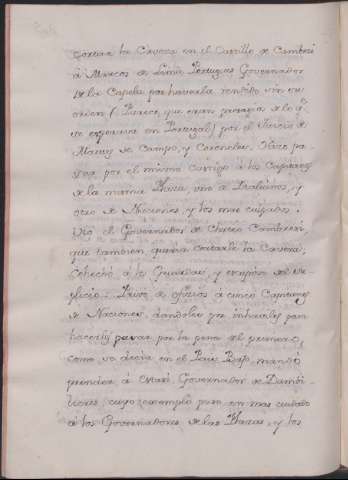 cortar la Caveza en el Castillo de Cambrai
à Marcos de Lima Portugues Governador
de la Capela por haverla rendido sin su
orden (Parece, que eran presagio de lo q̃
se esperava en Portugal) por el Juicio de
Maeses de Campo, y Coroneles. Hizo pa-
sar por el mismo castigo à los Capitanes
de la misma Plaza, uno de Italianos, y
otro de Naciones, y los mas culpados.
Viò el Governador de Chateo Cambresi,
que tambien queria cortarle la Caveza;
à los y del su-
plicio: Privò de oficios à cinco Capitanes
de Naciones, dandolos por inhaviles para
hacerles pasar por la pena del primero,
como se decia en el Pais Bajo, mandò
prender à Governador de Dambi-
lieres; cuyo exemplo puso en mas cuidado
à los Governadores de las Plazas, y los